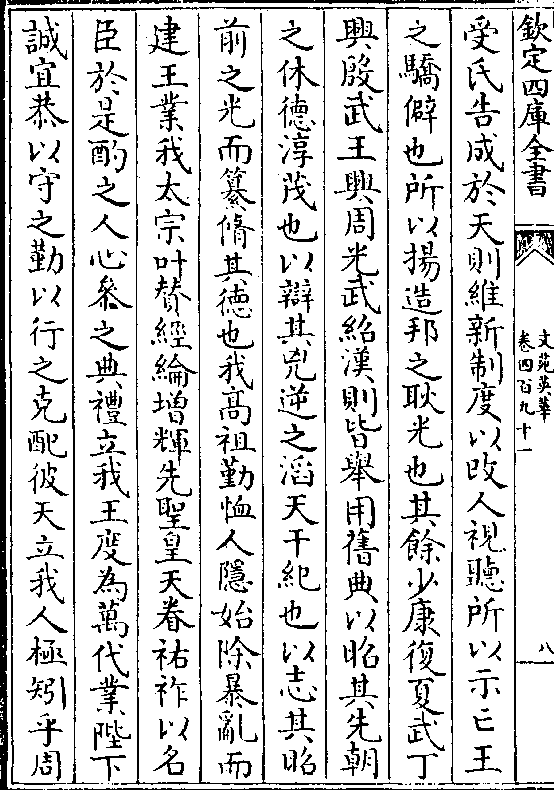 欽定四庫全書
文苑英華
卷四百九十一
八
受氏告成於天則維新制度以改人視聽所以示亡王
之驕僻也所以揚造邦之耿光也其餘少康復夏武丁
興殷武王興周光武紹漢則皆舉用舊典以昭其先朝
之休德淳茂也以辯其兇逆之滔天干紀也以志其昭
前之光而纂脩其徳也我髙祖勤恤人隱始除暴亂而
建王業我太宗叶賛經綸增輝先聖皇天眷祐祚以名
臣於是酌之人心叅之典禮立我王度為萬代業陛下
誠宜恭以守之勤以行之克配彼天立我人極矧乎周